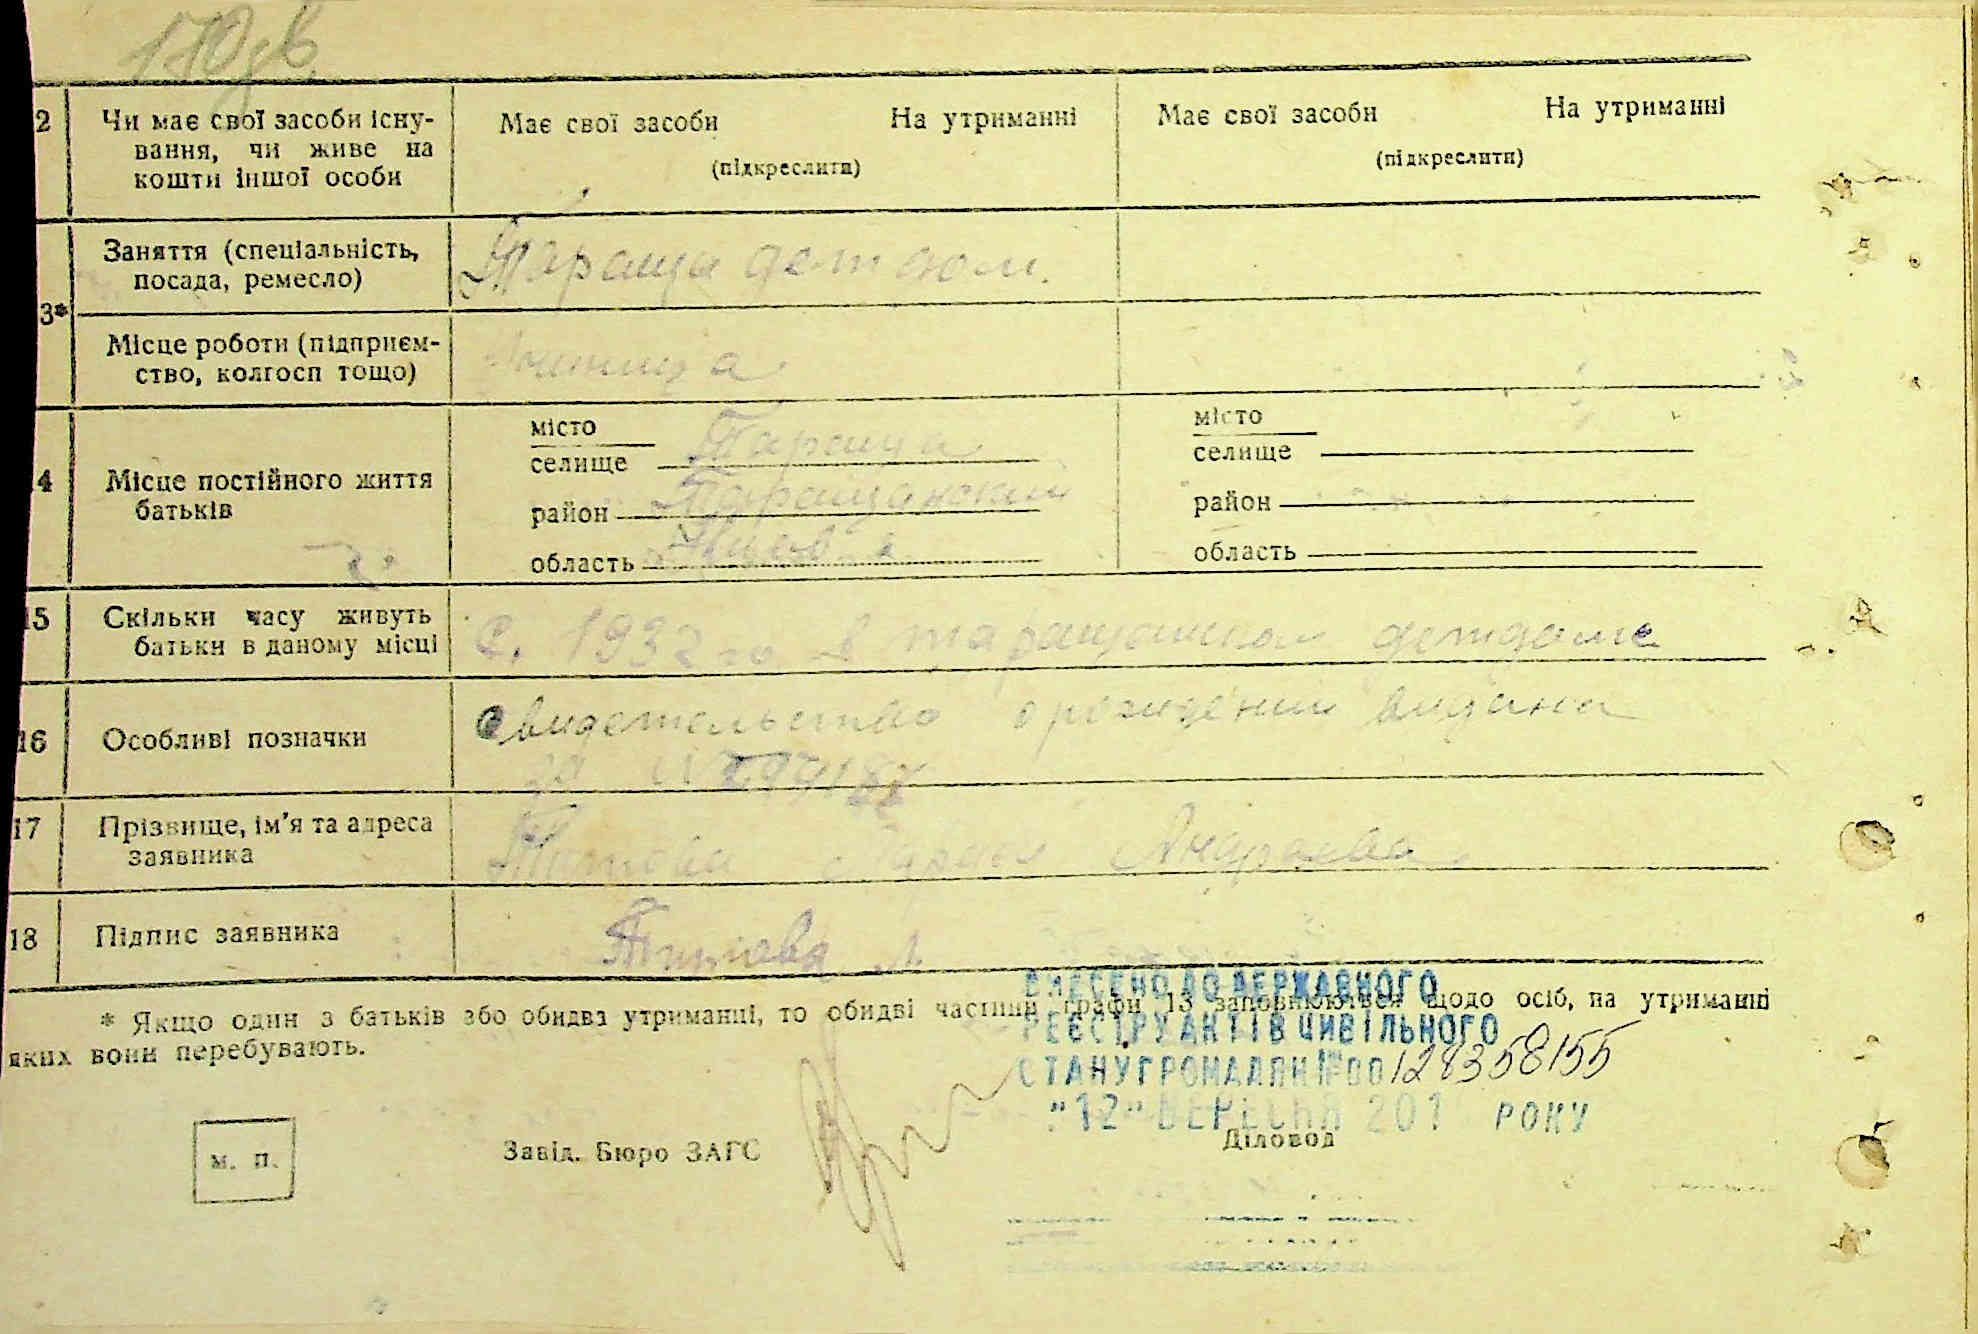 170 зв
2 Чи має свої засоби існу-
вання, чи живе на
кошти іншої особи
Має свої засоби На утриманні
(підкреслити)
Має свої засоби На утриманні
(підкреслити)
3*
Заняття (спеціальність,
посада, ремесло)
Тараща детдом.
Місце роботи (підприєм-
ство, колгосп тощо)
4 Місце постійного життя
батьків
місто
селище Тараща
район Таращанский
область Киев
місто
селище
район
область
15 Скільки часу живуть
батьки в даному місці
С. 1932 го в таращанском детдоме
16 Особливі позначки
свидетельство о рождении видано
17 Прізвище, ім’я та адреса
заявника
Титова Андреева
18 Підпис заявника
Титова
* Якщо один з батьків або обидва утриманці, то обидві частини графи 13 заповнюються щодо осіб, на утриманні
яких вони перебувають.
ВНЕСЕНО ДО ДЕРЖАВНОГО
РЕЄСТРУ АКТІВ ЦИВІЛЬНОГО
СТАНУ ГРОМАДЯН № 00128358155
"12" ВЕРЕСНЯ 201 РОКУ
м. п.
Завід. Бюро ЗАГС
Діловод